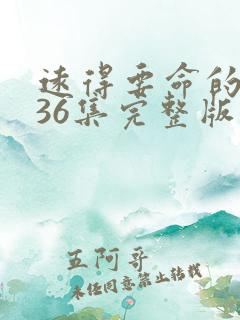 远得要命的
36集完整版
五阿哥
未经同意禁止转载